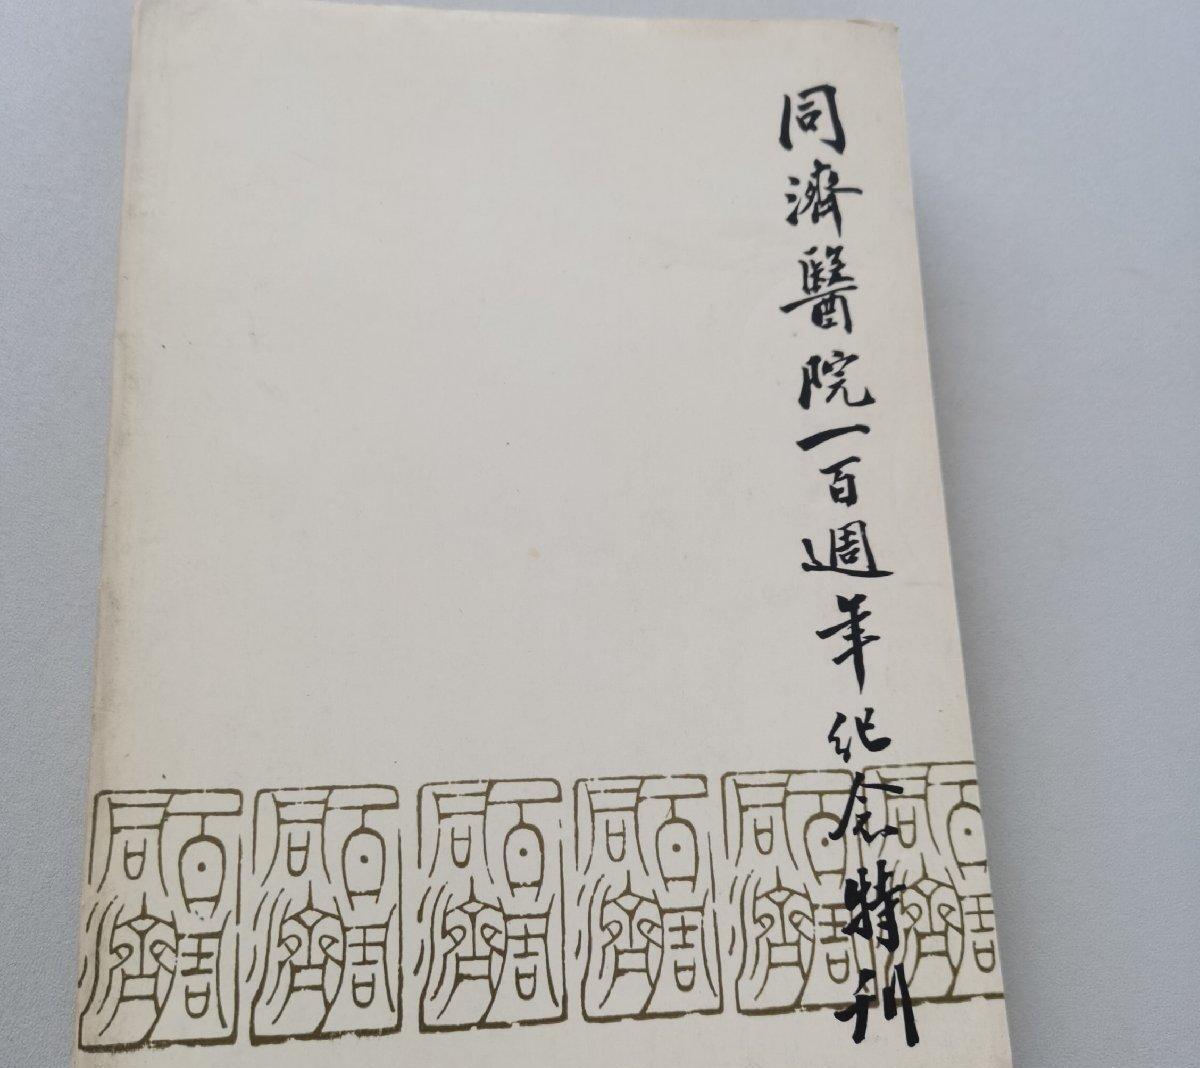 同濟醫院一百週年纪念特刊
百周同濟
百周同濟
百周同濟
百周同濟
百周同濟
百周同濟